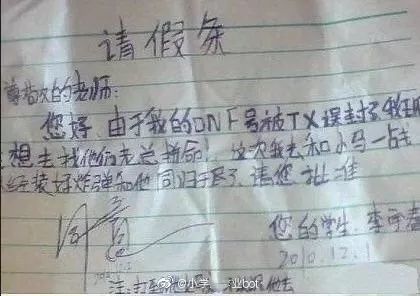 请假条
尊敬的老师:
您好,由于我的DNF号被TX误封,我
想去找他们老总拼命!这次我去和小马一
经装好炸弹和他同归于尽,请您批准
同意
您的学生:李
2010.12.1
注:
@小学 业bot